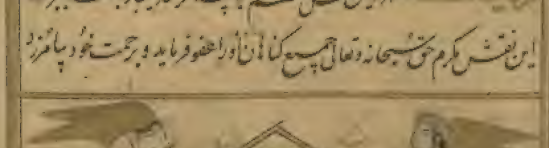 این نقش مکرم حق سبحانه وتعالی جمیع کناهان اورا عفو فرماید و برحمت خود بیامرزد